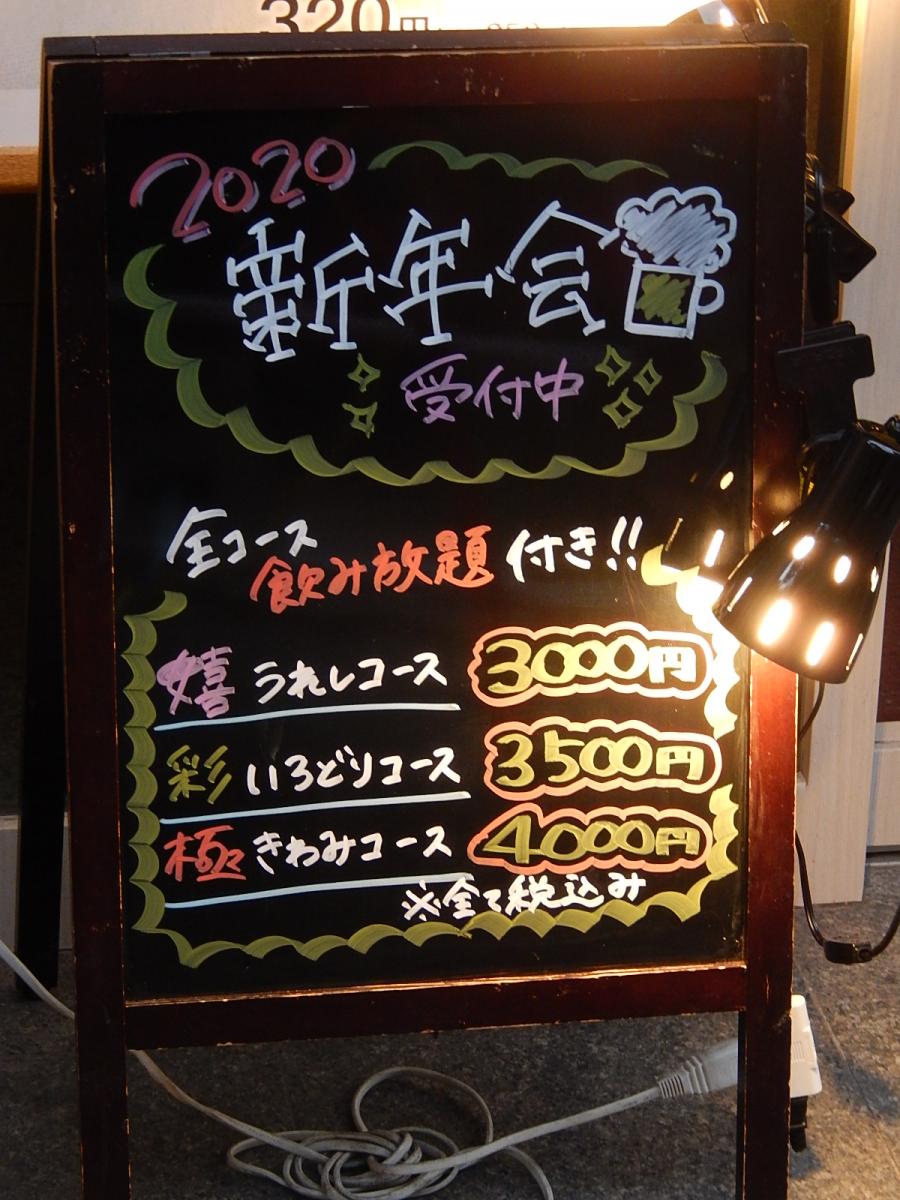 320円
2020
新年会
受付中
全コース
飲み放題 付き!!
嬉 うれしコース 3000円
彩 いろどりコース 3500円
極 きわみコース 4000円
※全て税込み